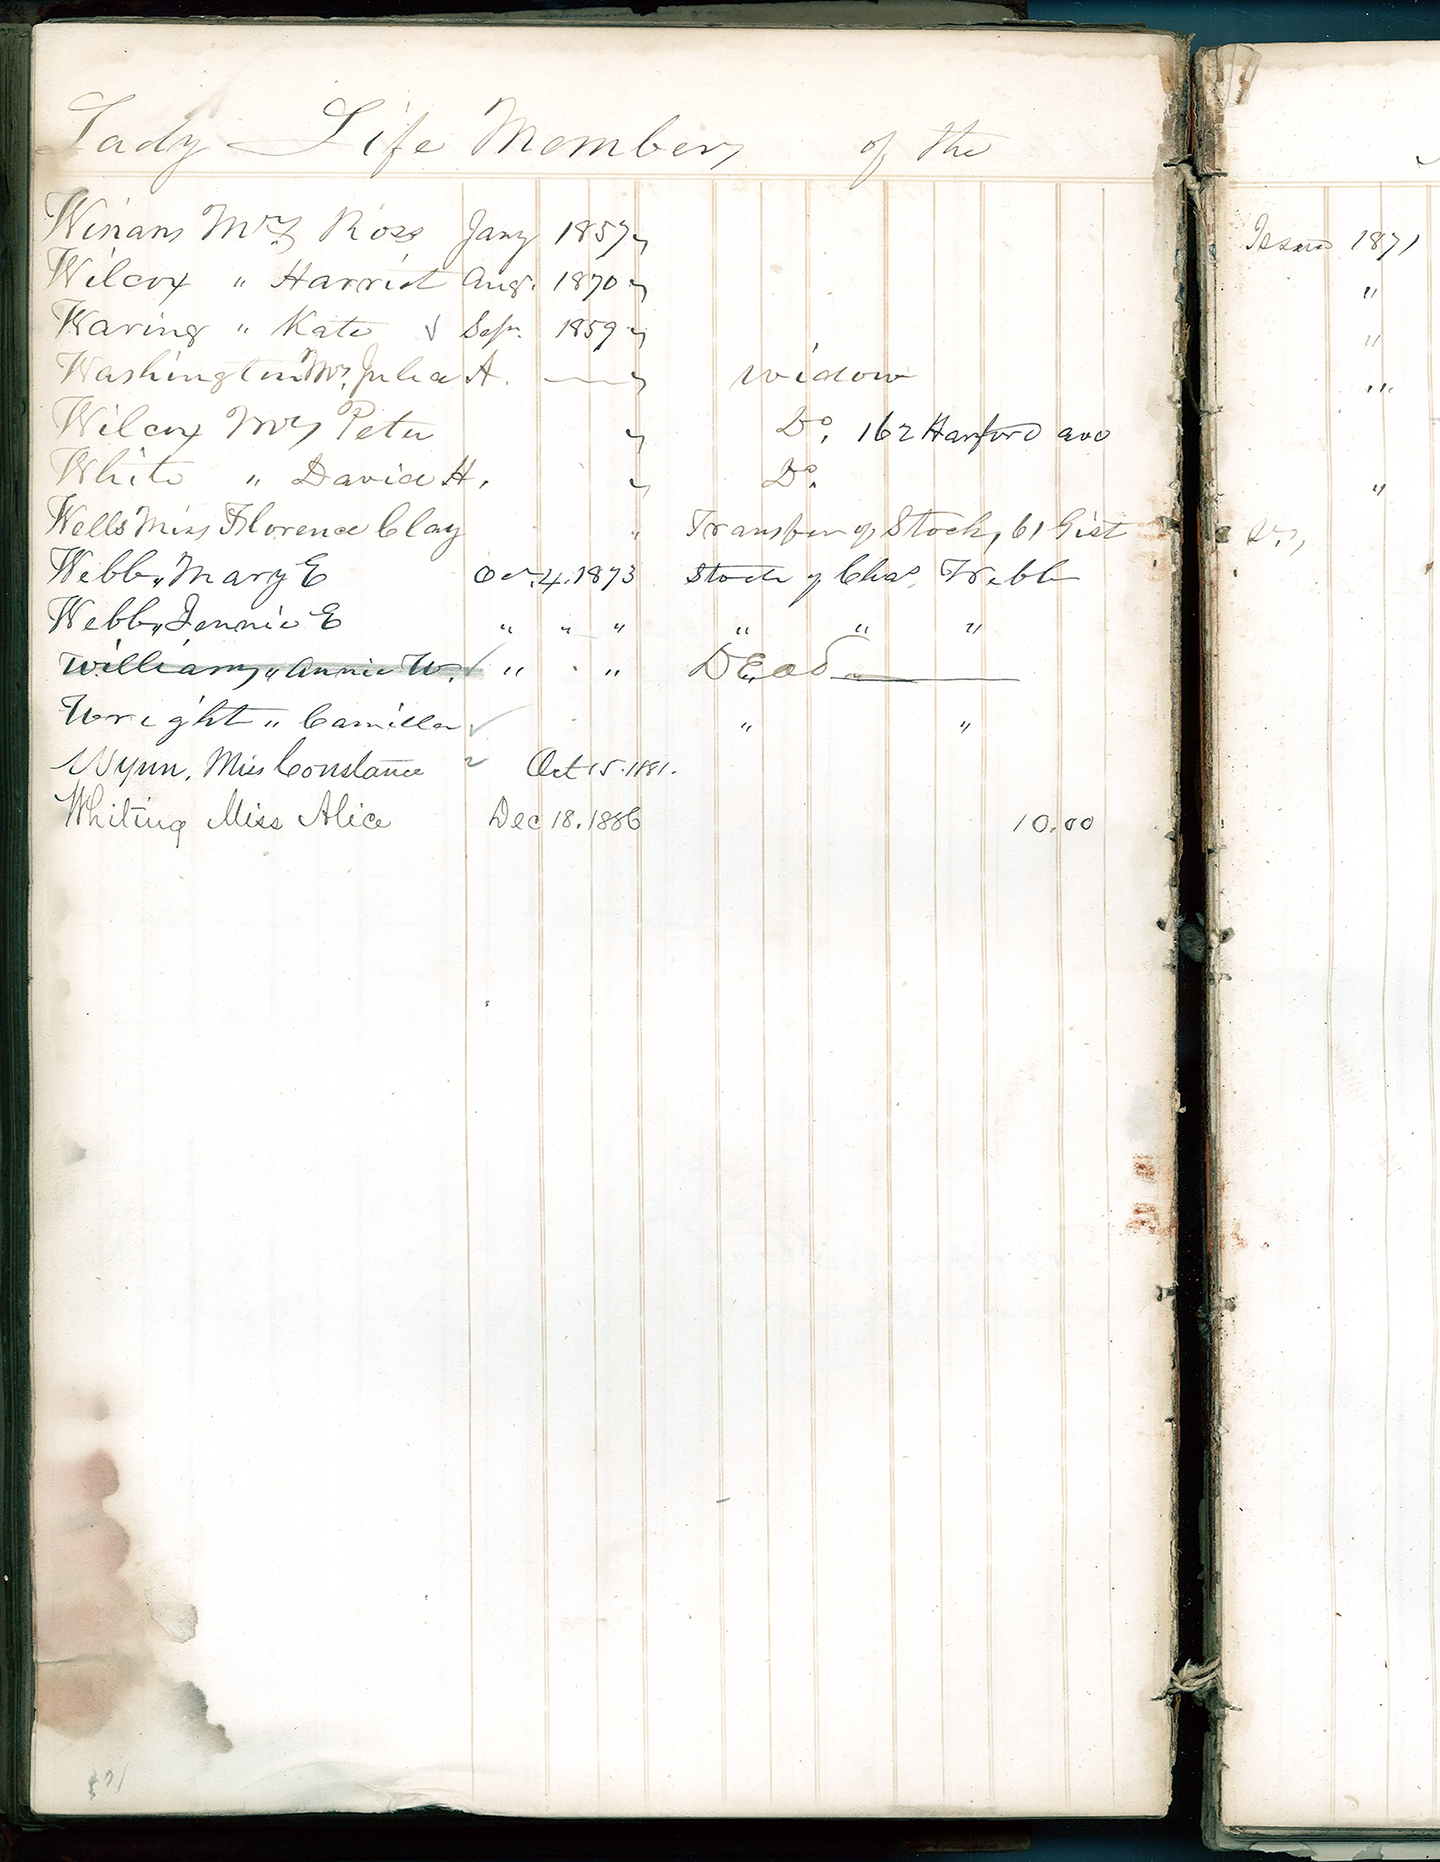 Lady Life Members of the
Winans Mrs Ross Jany 1857 "
Wilcox " Harriet Aug. 1870 "
Waring " Kate Sep. 1859 "
Washington Mrs Julia A. — " widow
Wilcox Mrs Peter " Do. 162 Harford ave
White " David H. " Do.
Wells Miss Florence Clay " Transfer of Stock, 61 Gist
Webb " Mary E Oct. 4. 1873 Stock of Chas. Webb
Webb " Jennie E " " " " " "
Williams " Annie W. ✓ " " " Dead
Wright " Camilla ✓ " "
Wynn, Miss Constance ✓ Oct 15. 1881.
Whiting Miss Alice Dec 18. 1886 10.00
Issued 1871
"
"
"
"
Do,